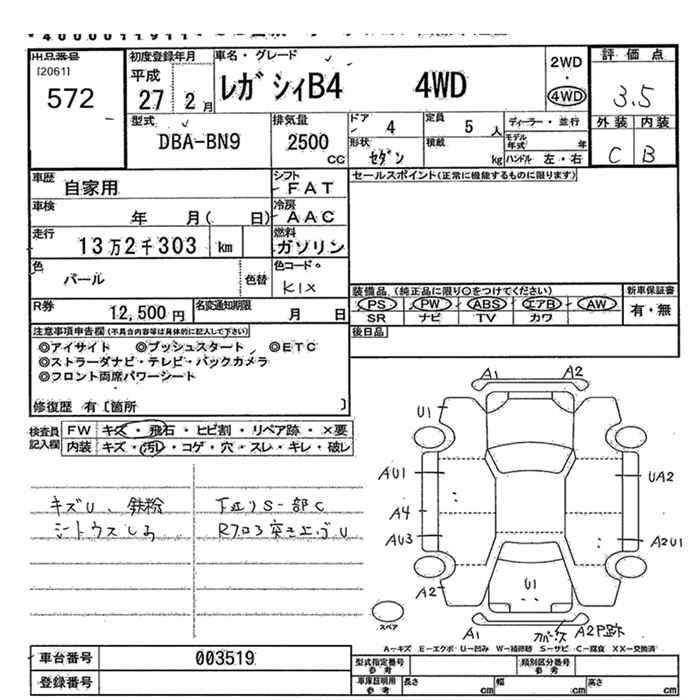 出品番号 [2061] 572
初度登録年月 平成 27 2月
車名・グレード レガシィB4 4WD
2WD・4WD
評価点 3.5
型式 DBA-BN9
排気量 2500 CC
ドア 4
定員 5 人
形状 セダン
積載 kg
ディーラー・並行
モデル年式 年
ハンドル 左・右
外装 内装
C B
車歴 自家用
シフト FAT
車検 年 月( 日)
冷房 AAC
走行 13万2千303 km
燃料 ガソリン
色 パール 色替
色コード K1X
R券 12,500円
名変通知期限 月 日
セールスポイント(正常に機能するものに限ります)
装備品(純正品に限り○をつけてください)
新車保証書 有・無
PS PW ABS エアB AW
SR ナビ TV カワ
後日品
注意事項申告欄(不具合内容等は具体的に記入して下さい)
◎アイサイト ◎プッシュスタート ◎ETC
◎ストラーダナビ・テレビ・バックカメラ
◎フロント両席パワーシート
修復歴 有〔箇所 〕
検査員記入欄
FW キズ・飛石・ヒビ割・リペア跡・×要
内装 キズ・汚れ・コゲ・穴・スレ・キレ・破レ
キズU、鉄粉
シートウスしみ
下廻りS-部C
Rフロア突き上げU
A1 A2
U1
AU1 UA2
A4
AU3 A2U1
A2
U1
A1 A2P跡
スペア
A→キズ E→エクボ U→凹み W→補修跡 S→サビ C→腐食 XX→交換済
車台番号 003519
登録番号
型式指定番号 参考
類別区分番号 参考
車庫証明用 参考 長さ cm 幅 cm 高さ cm